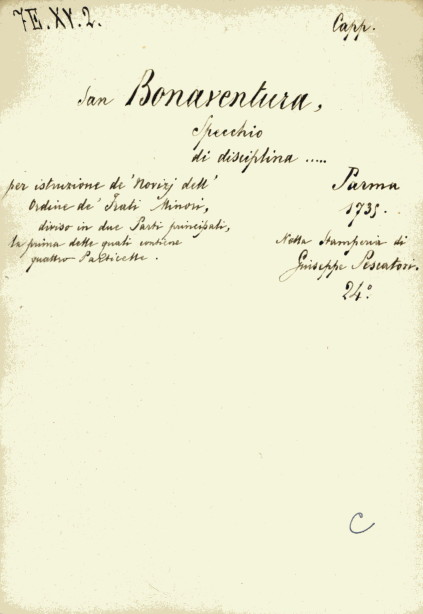 7E.XV.2.
Capp.
San Bonaventura,
Specchio
di disciplina .....
per istruzione de' Novizj dell'
Ordine de' Frati Minori,
diviso in due Parti principali,
la prima delle quali contiene
quattro Particette.
Parma
1735.
Nella Stamperia di
Giuseppe Pescatori.
24°
C